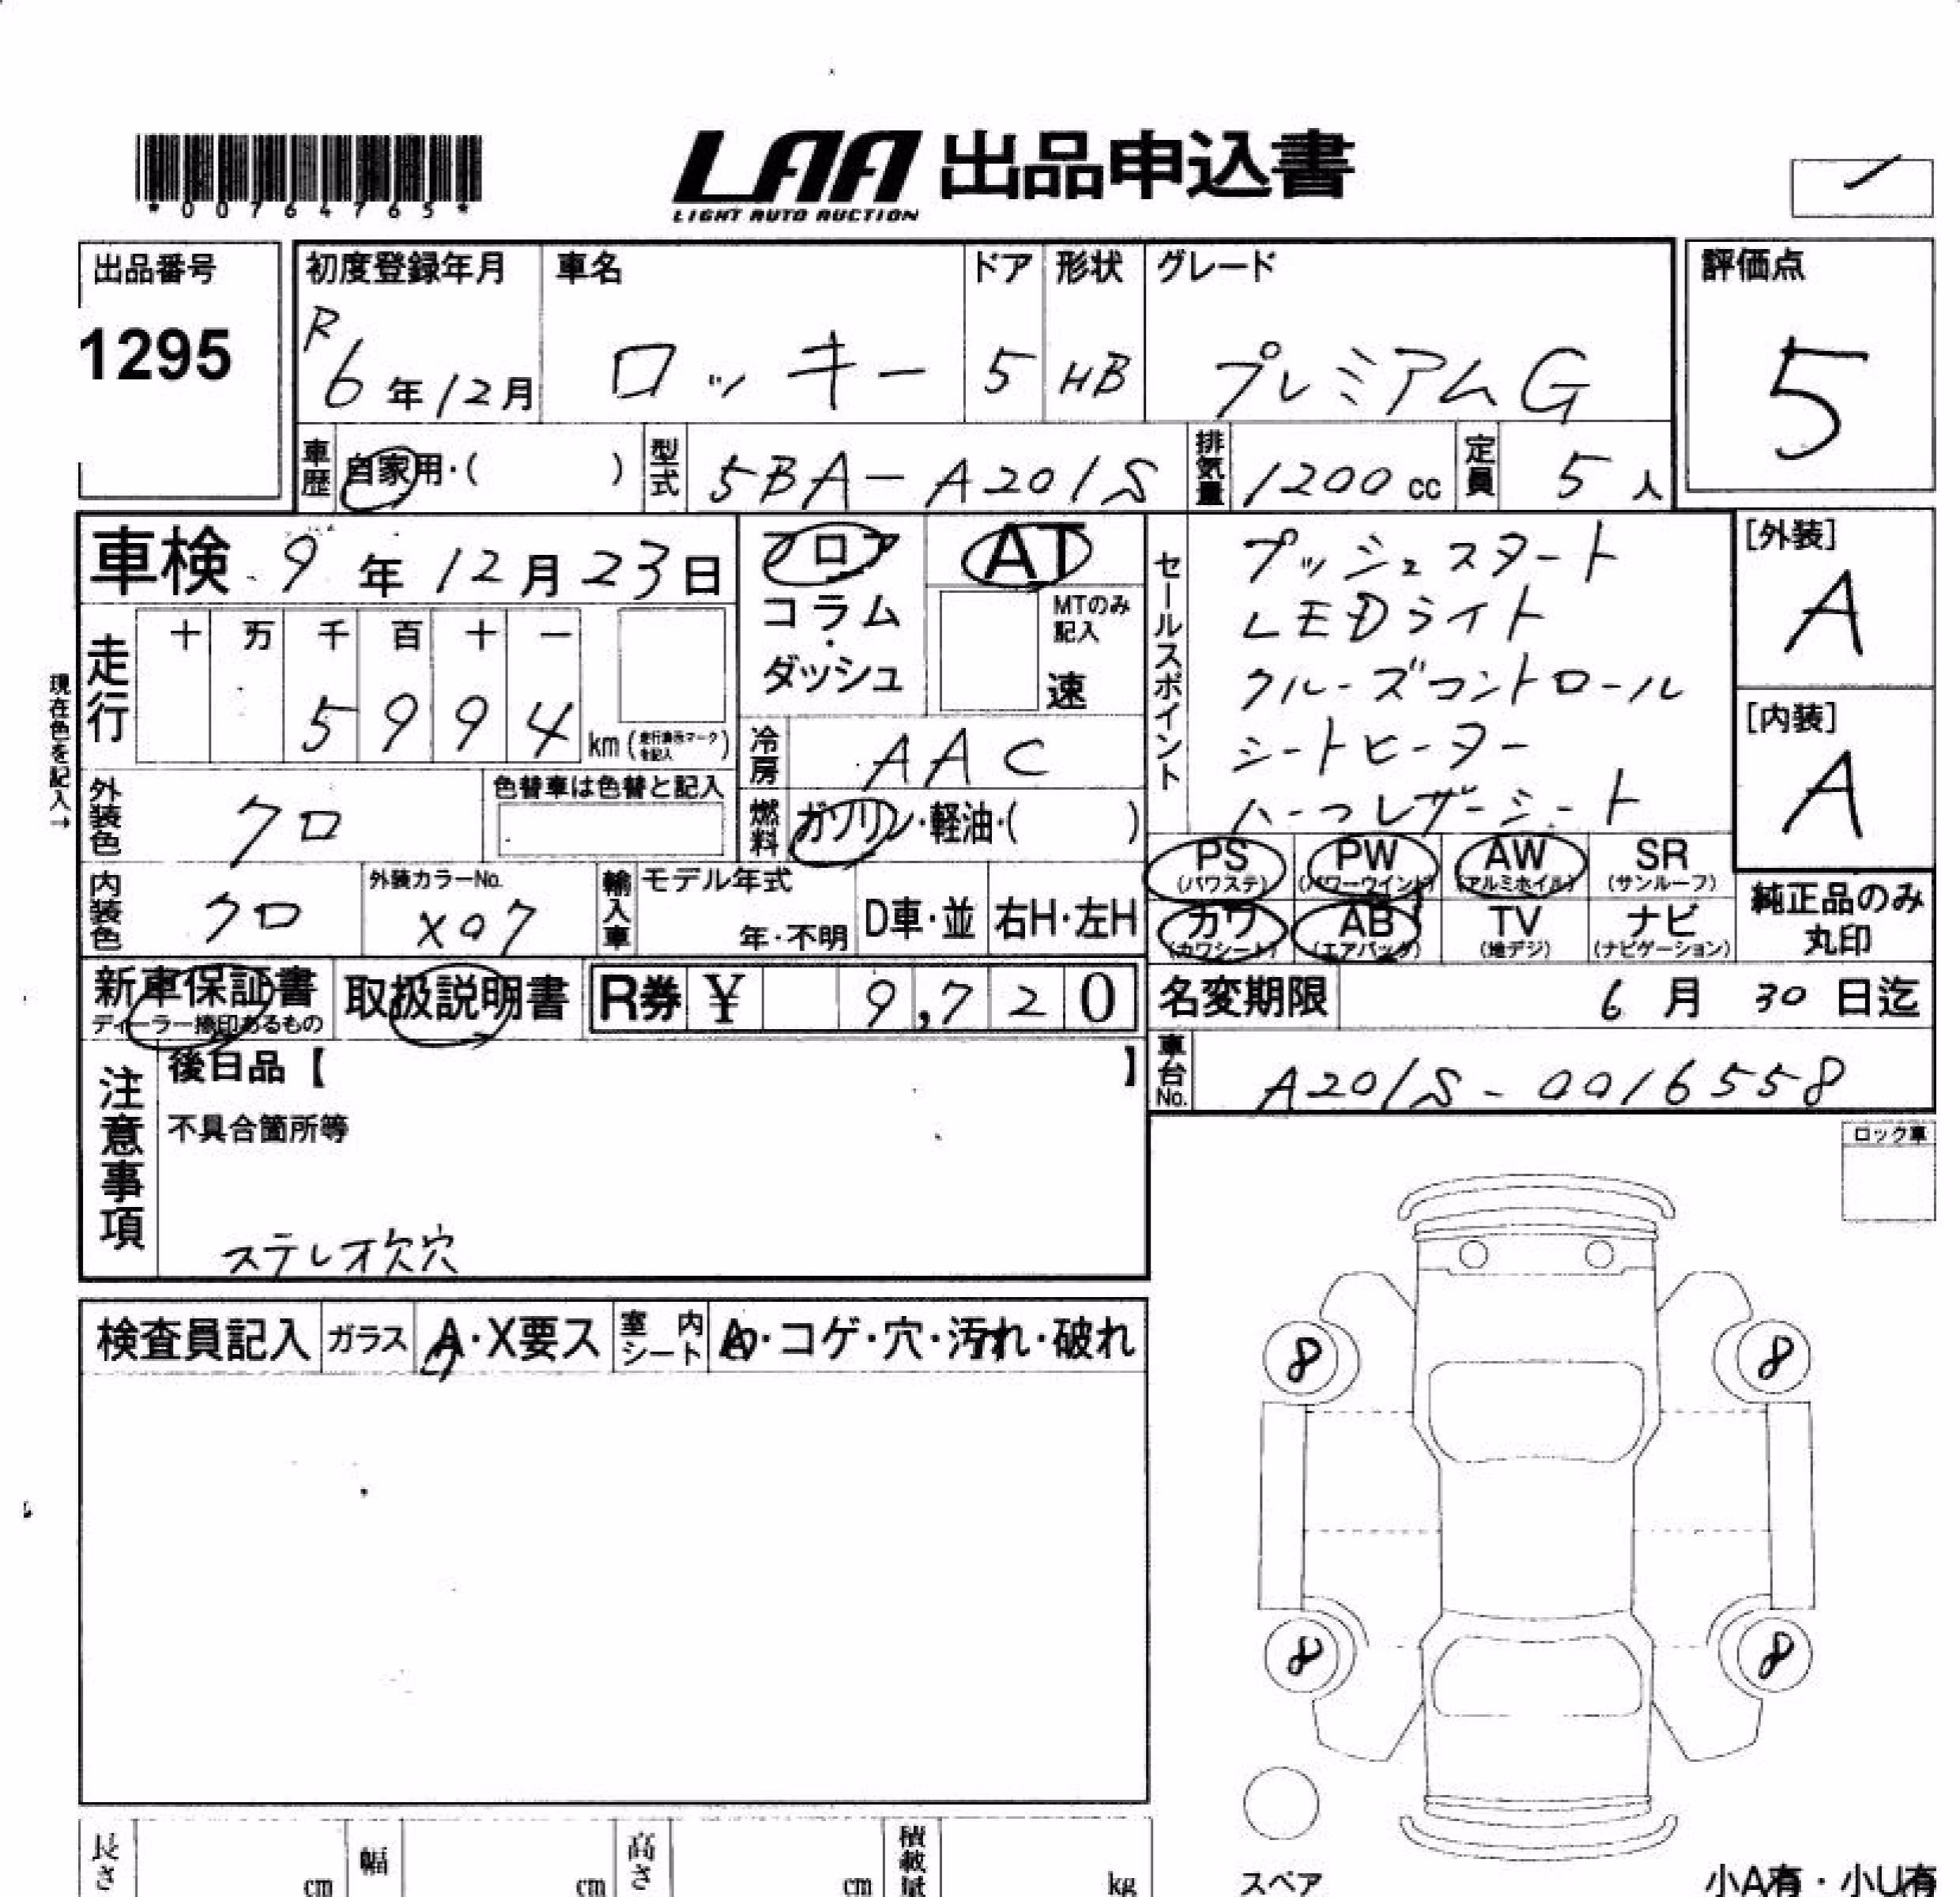 *00764765*
LAA 出品申込書
LIGHT AUTO AUCTION
出品番号
1295
初度登録年月
R6年12月
車名
ロッキー
ドア
5
形状
HB
グレード
プレミアムG
評価点
5
車歴
自家用・( )
型式
5BA-A201S
排気量
1200cc
定員
5人
車検 9年12月23日
フロア
コラム
・
ダッシュ
AT
MTのみ記入
速
セールスポイント
プッシュスタート
LEDライト
クルーズコントロール
シートヒーター
ハーフレザーシート
[外装]
A
[内装]
A
現在色を記入→
走行
十 万 千 百 十 一
5 9 9 4 km
冷房
AAC
燃料
ガソリン・軽油・( )
外装色
クロ
色替車は色替と記入
内装色
クロ
外装カラーNo.
X07
輸入車
モデル年式
年・不明
D車・並
右H・左H
PS (パワステ)
PW (パワーウインド)
AW (アルミホイル)
SR (サンルーフ)
カワ (カワシート)
AB (エアバッグ)
TV (地デジ)
ナビ (ナビゲーション)
純正品のみ
丸印
新車保証書
ディーラー捺印あるもの
取扱説明書
R券 ¥ 9,720
名変期限 6月30日迄
車台No.
A201S-0016558
注意事項
後日品【 】
不具合箇所等
ステレオ欠穴
ロック車
検査員記入
ガラス
A・X要ス
室内シート
A・コゲ・穴・汚れ・破れ
8
8
8
8
スペア
小A有・小U有
長さ
cm
幅
cm
高さ
cm
積載量
kg